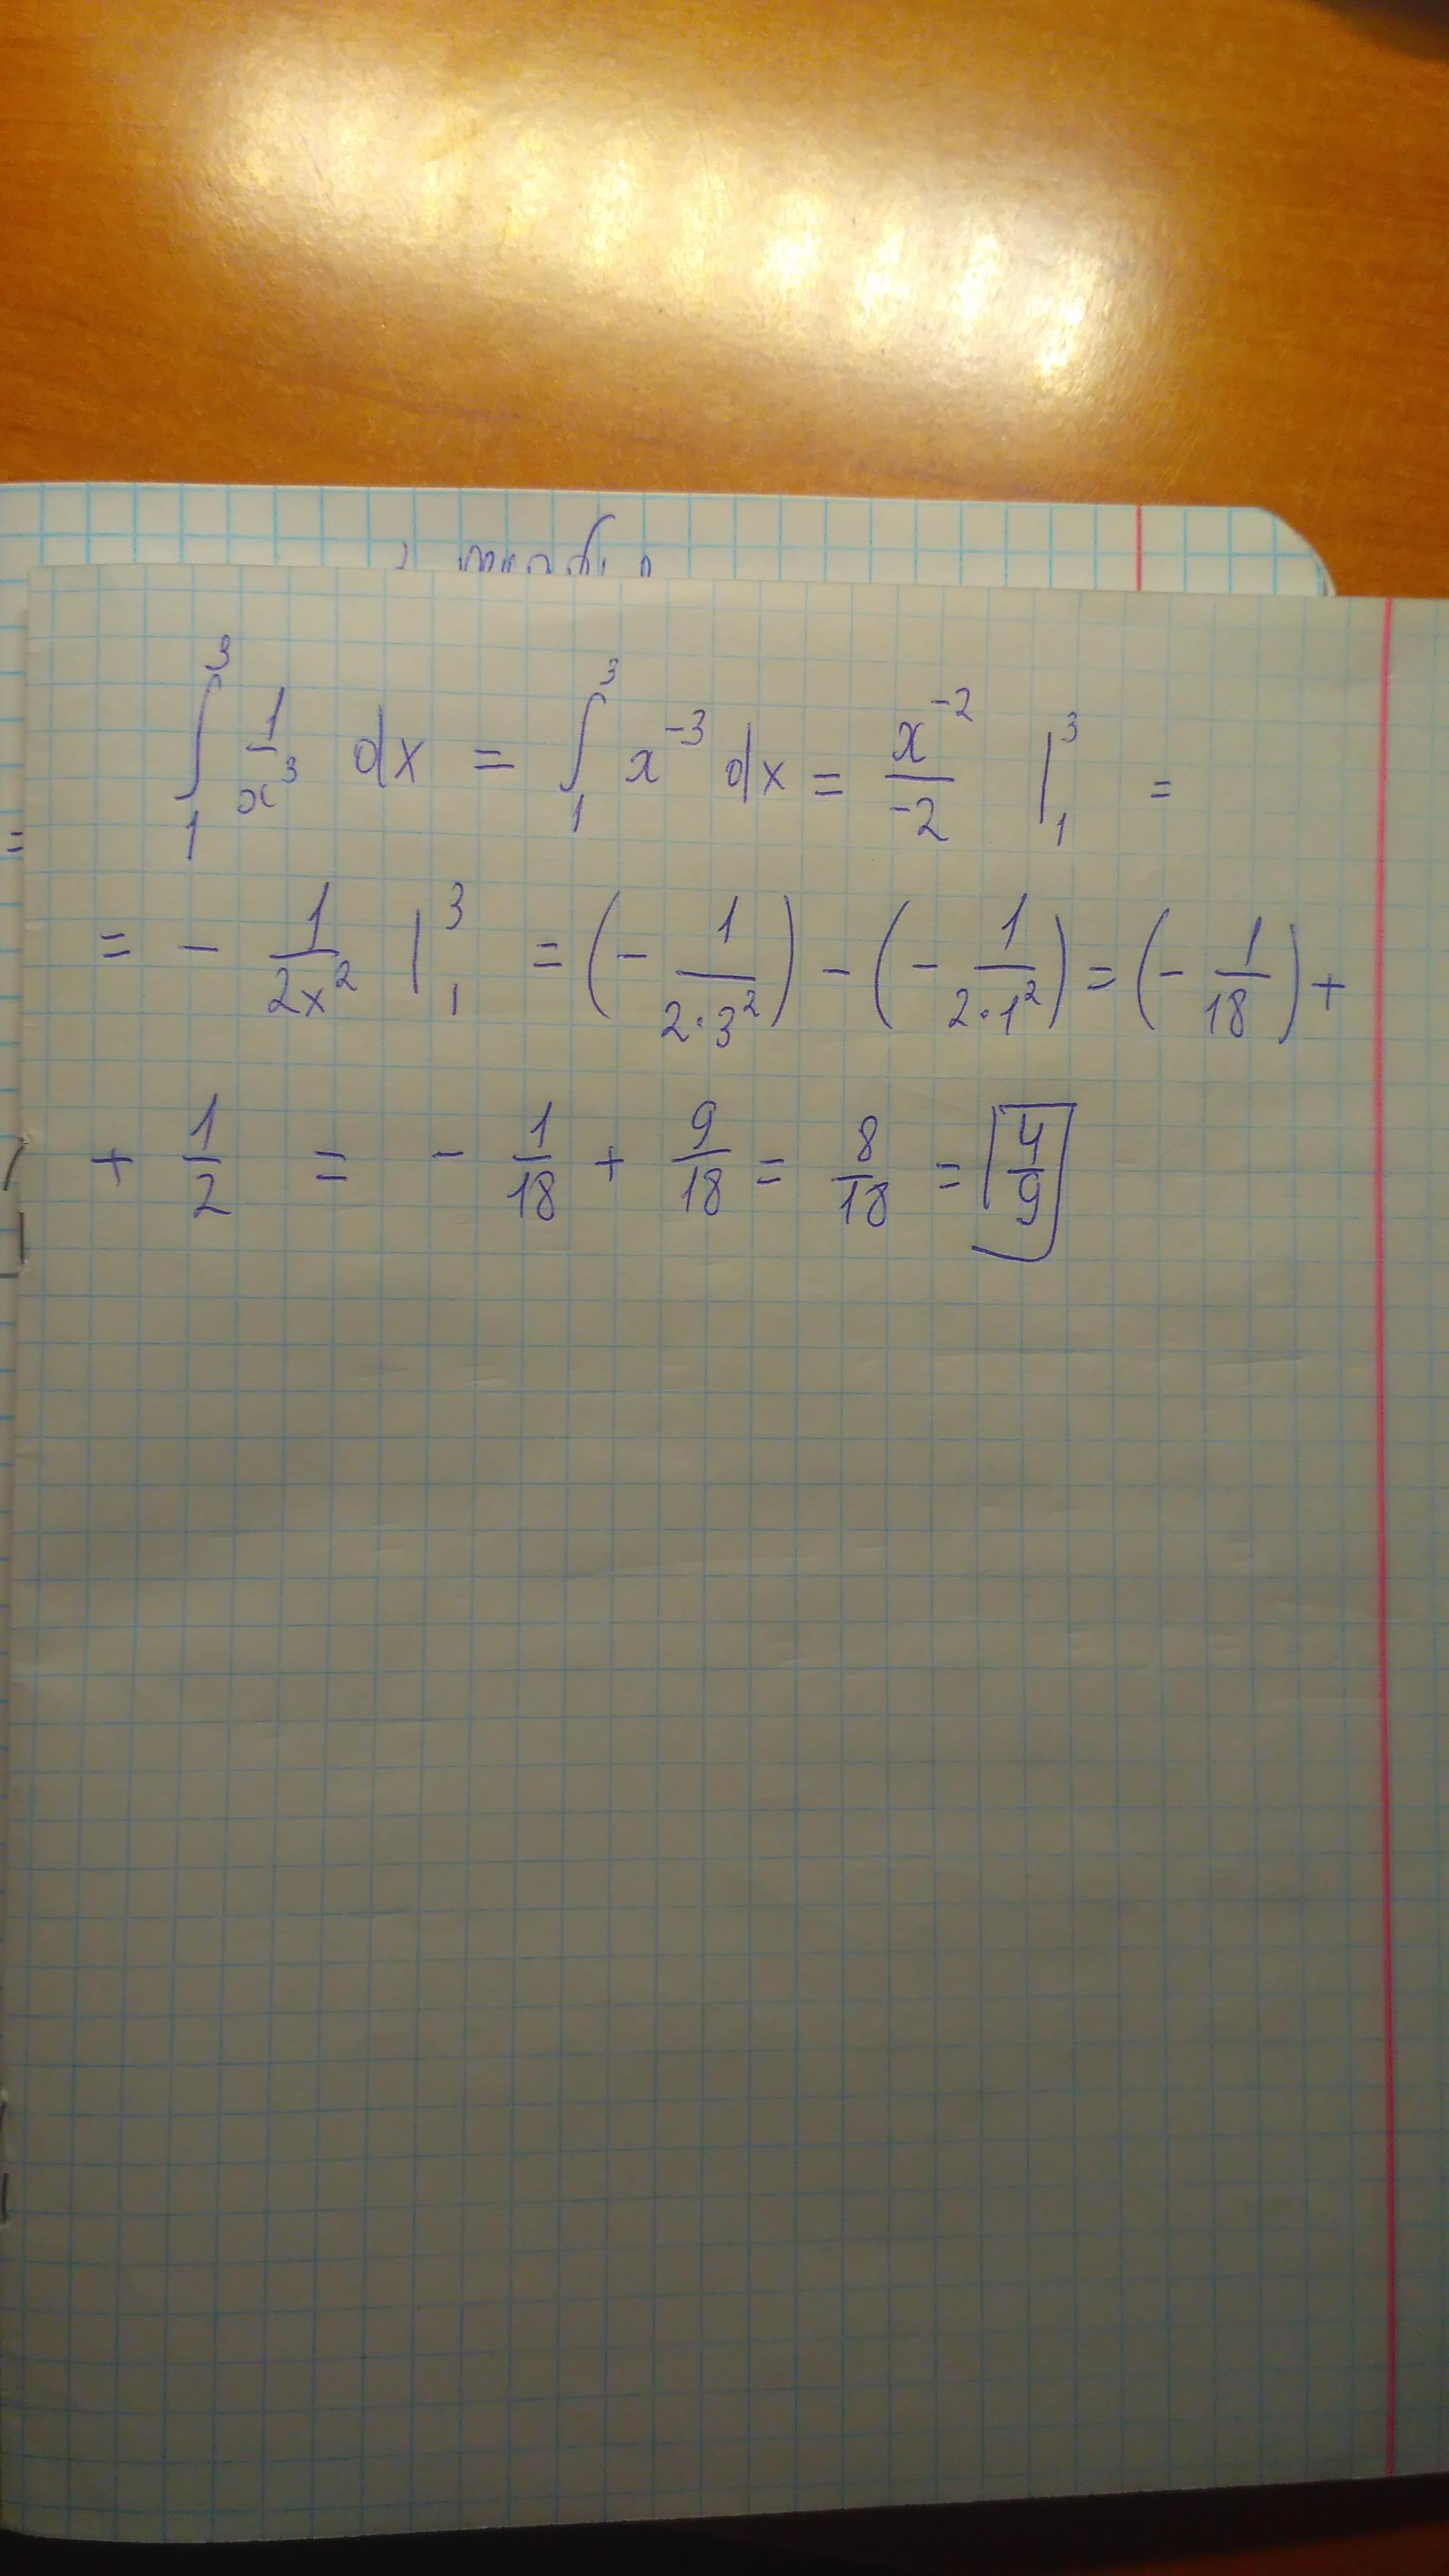 ∫₁³ 1/x³ dx = ∫₁³ x⁻³ dx = x⁻²/-2 |₁³ =
= - 1/2x² |₁³ = (- 1/2·3²) - (- 1/2·1²) = (- 1/18) +
+ 1/2 = - 1/18 + 9/18 = 8/18 = 4/9